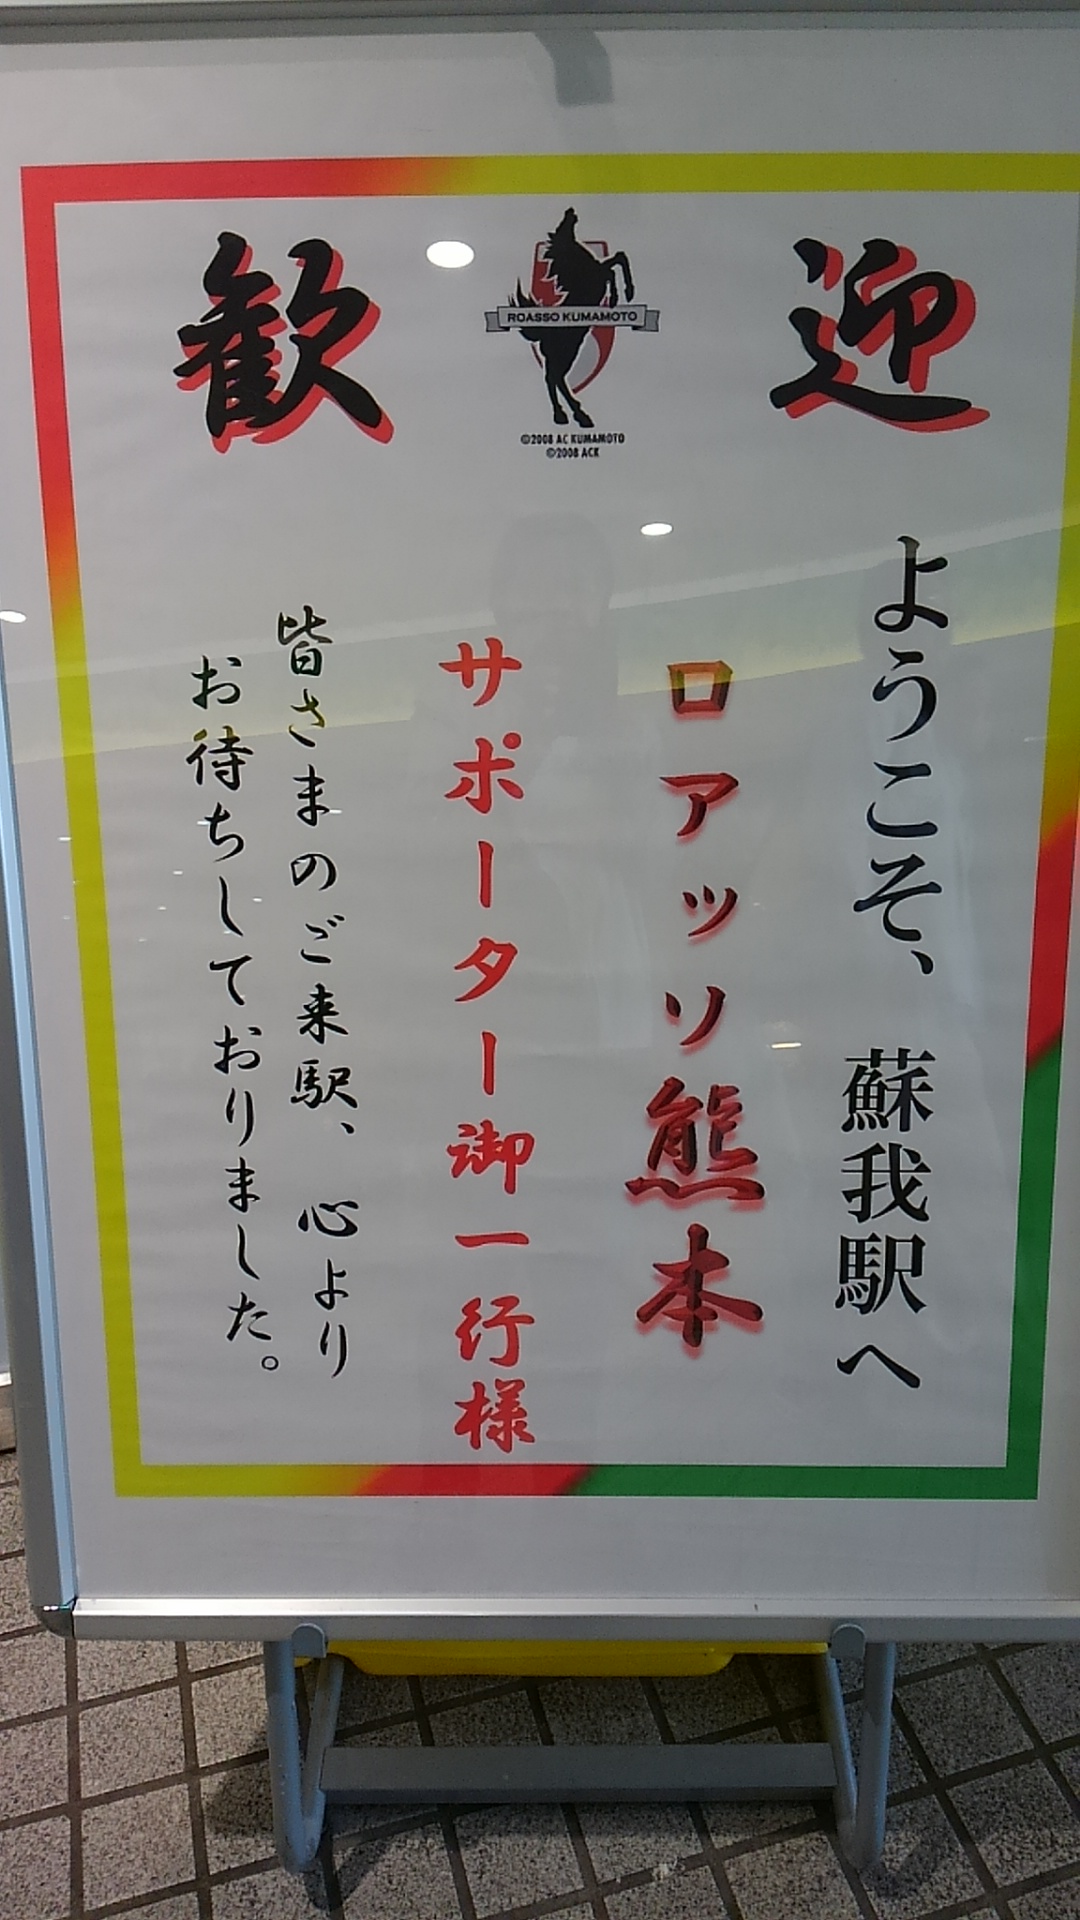 歓迎
ROASSO KUMAMOTO
©2008 AC KUMAMOTO
©2008 ACK
ようこそ、蘇我駅へ
ロアッソ熊本
サポーター御一行様
皆さまのご来駅、心より
お待ちしておりました。